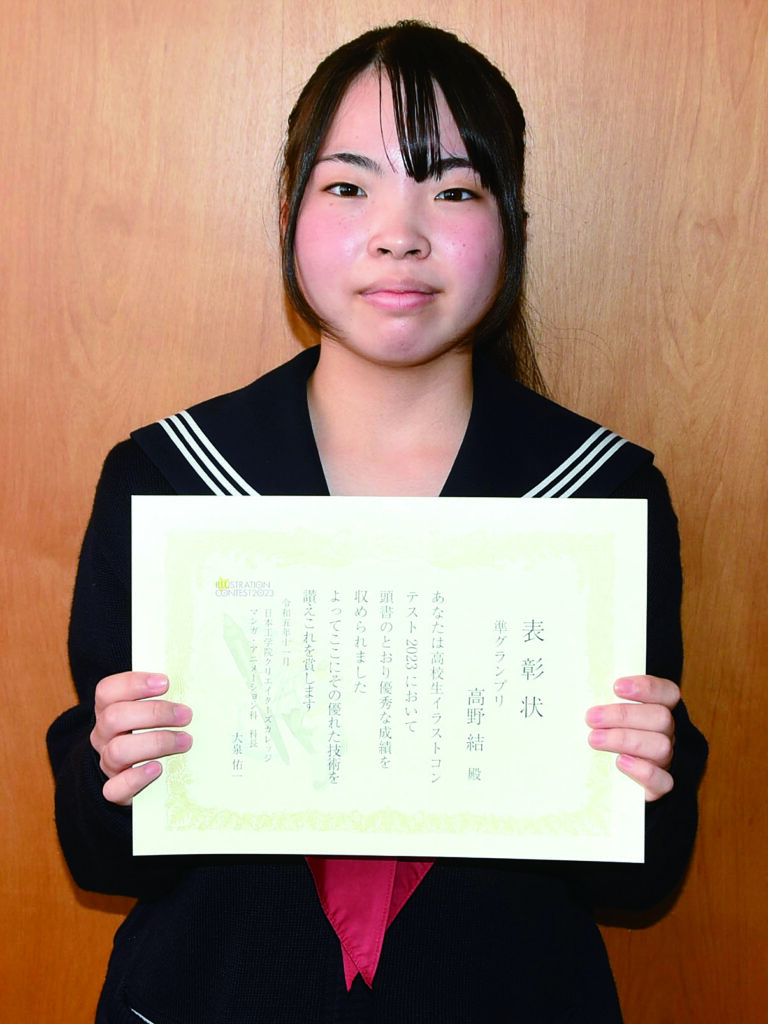 表彰状
準グランプリ
高野 結 殿
あなたは高校生イラストコン
テスト2023において
頭書のとおり優秀な成績を
収められました
よってここにその優れた技術を
讃えこれを賞します
令和五年十一月
日本工学院クリエイターズカレッジ
マンガ・アニメーション科 科長
大泉 佑一
ILLUSTRATION
CONTEST2023